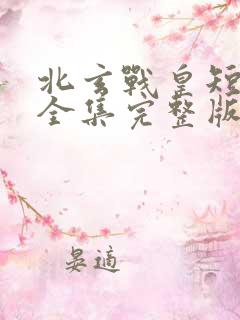 北玄戰皇短
全集完整版
晏適